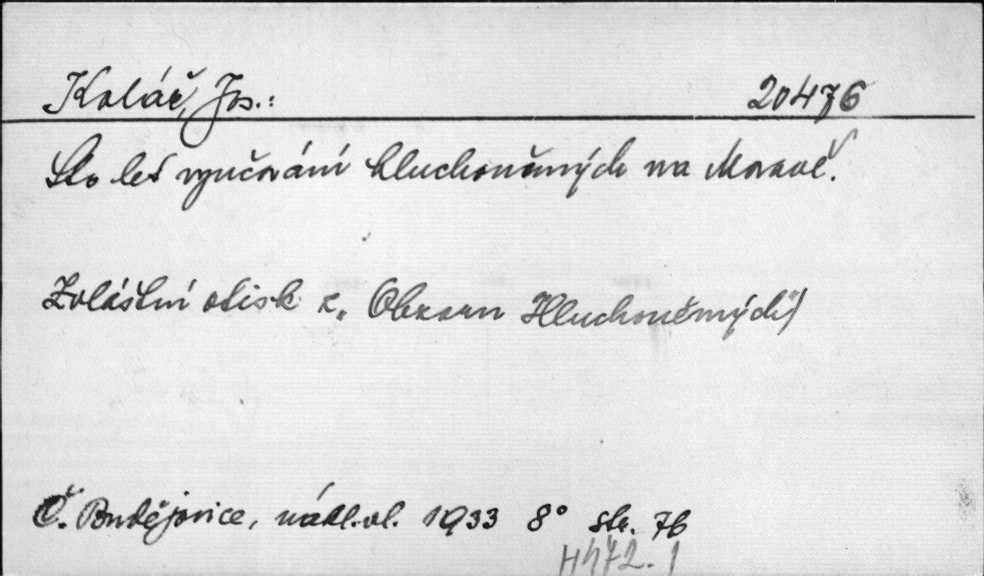 Kolář, Jos.: 20476
Sto let vyučování hluchoněmých na Moravě.
Zvláštní otisk z „Obzoru Hluchoněmých"
Č. Budějovice, nákl. vl. 1933 8° str. 76
H472.1